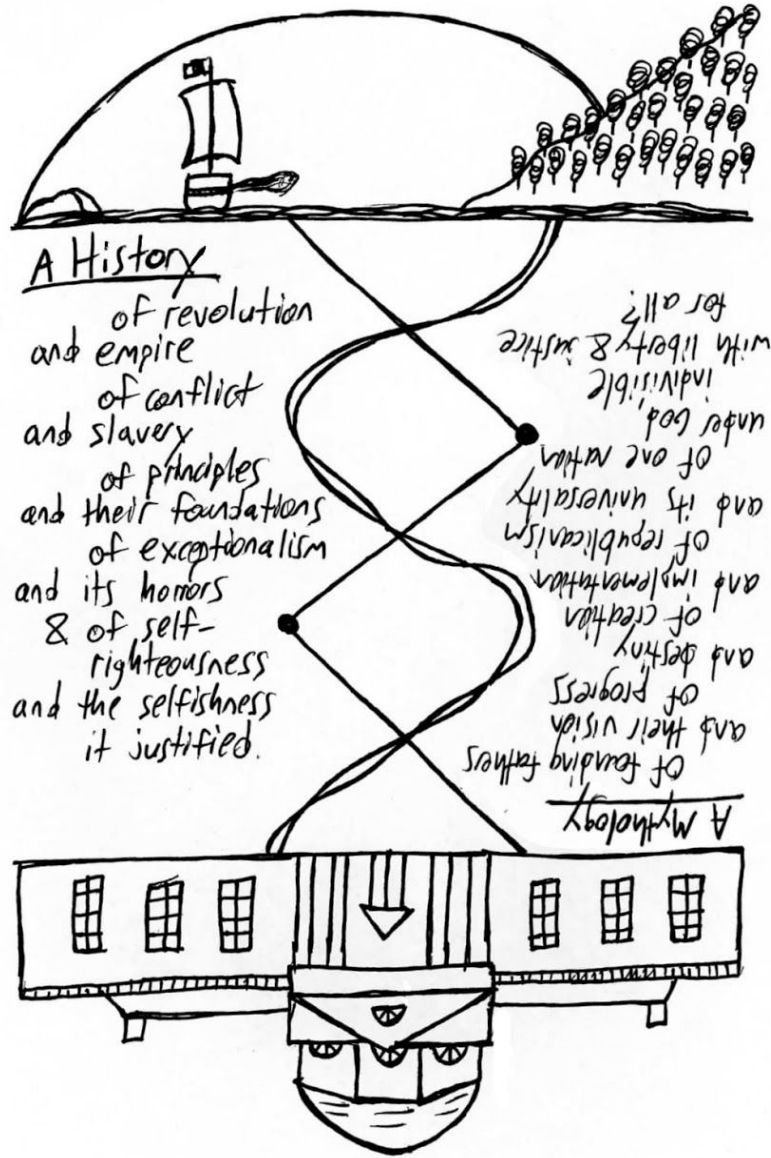 A History
of revolution
and empire
of conflict
and slavery
of principles
and their foundations
of exceptionalism
and its horrors
& of self-
righteousness
and the selfishness
it justified.
A Mythology
Of founding fathers
and their vision
of progress
and destiny
of creation
and implementation
of republicanism
and its universality
of one nation
under God,
indivisible
with liberty & justice
for all?